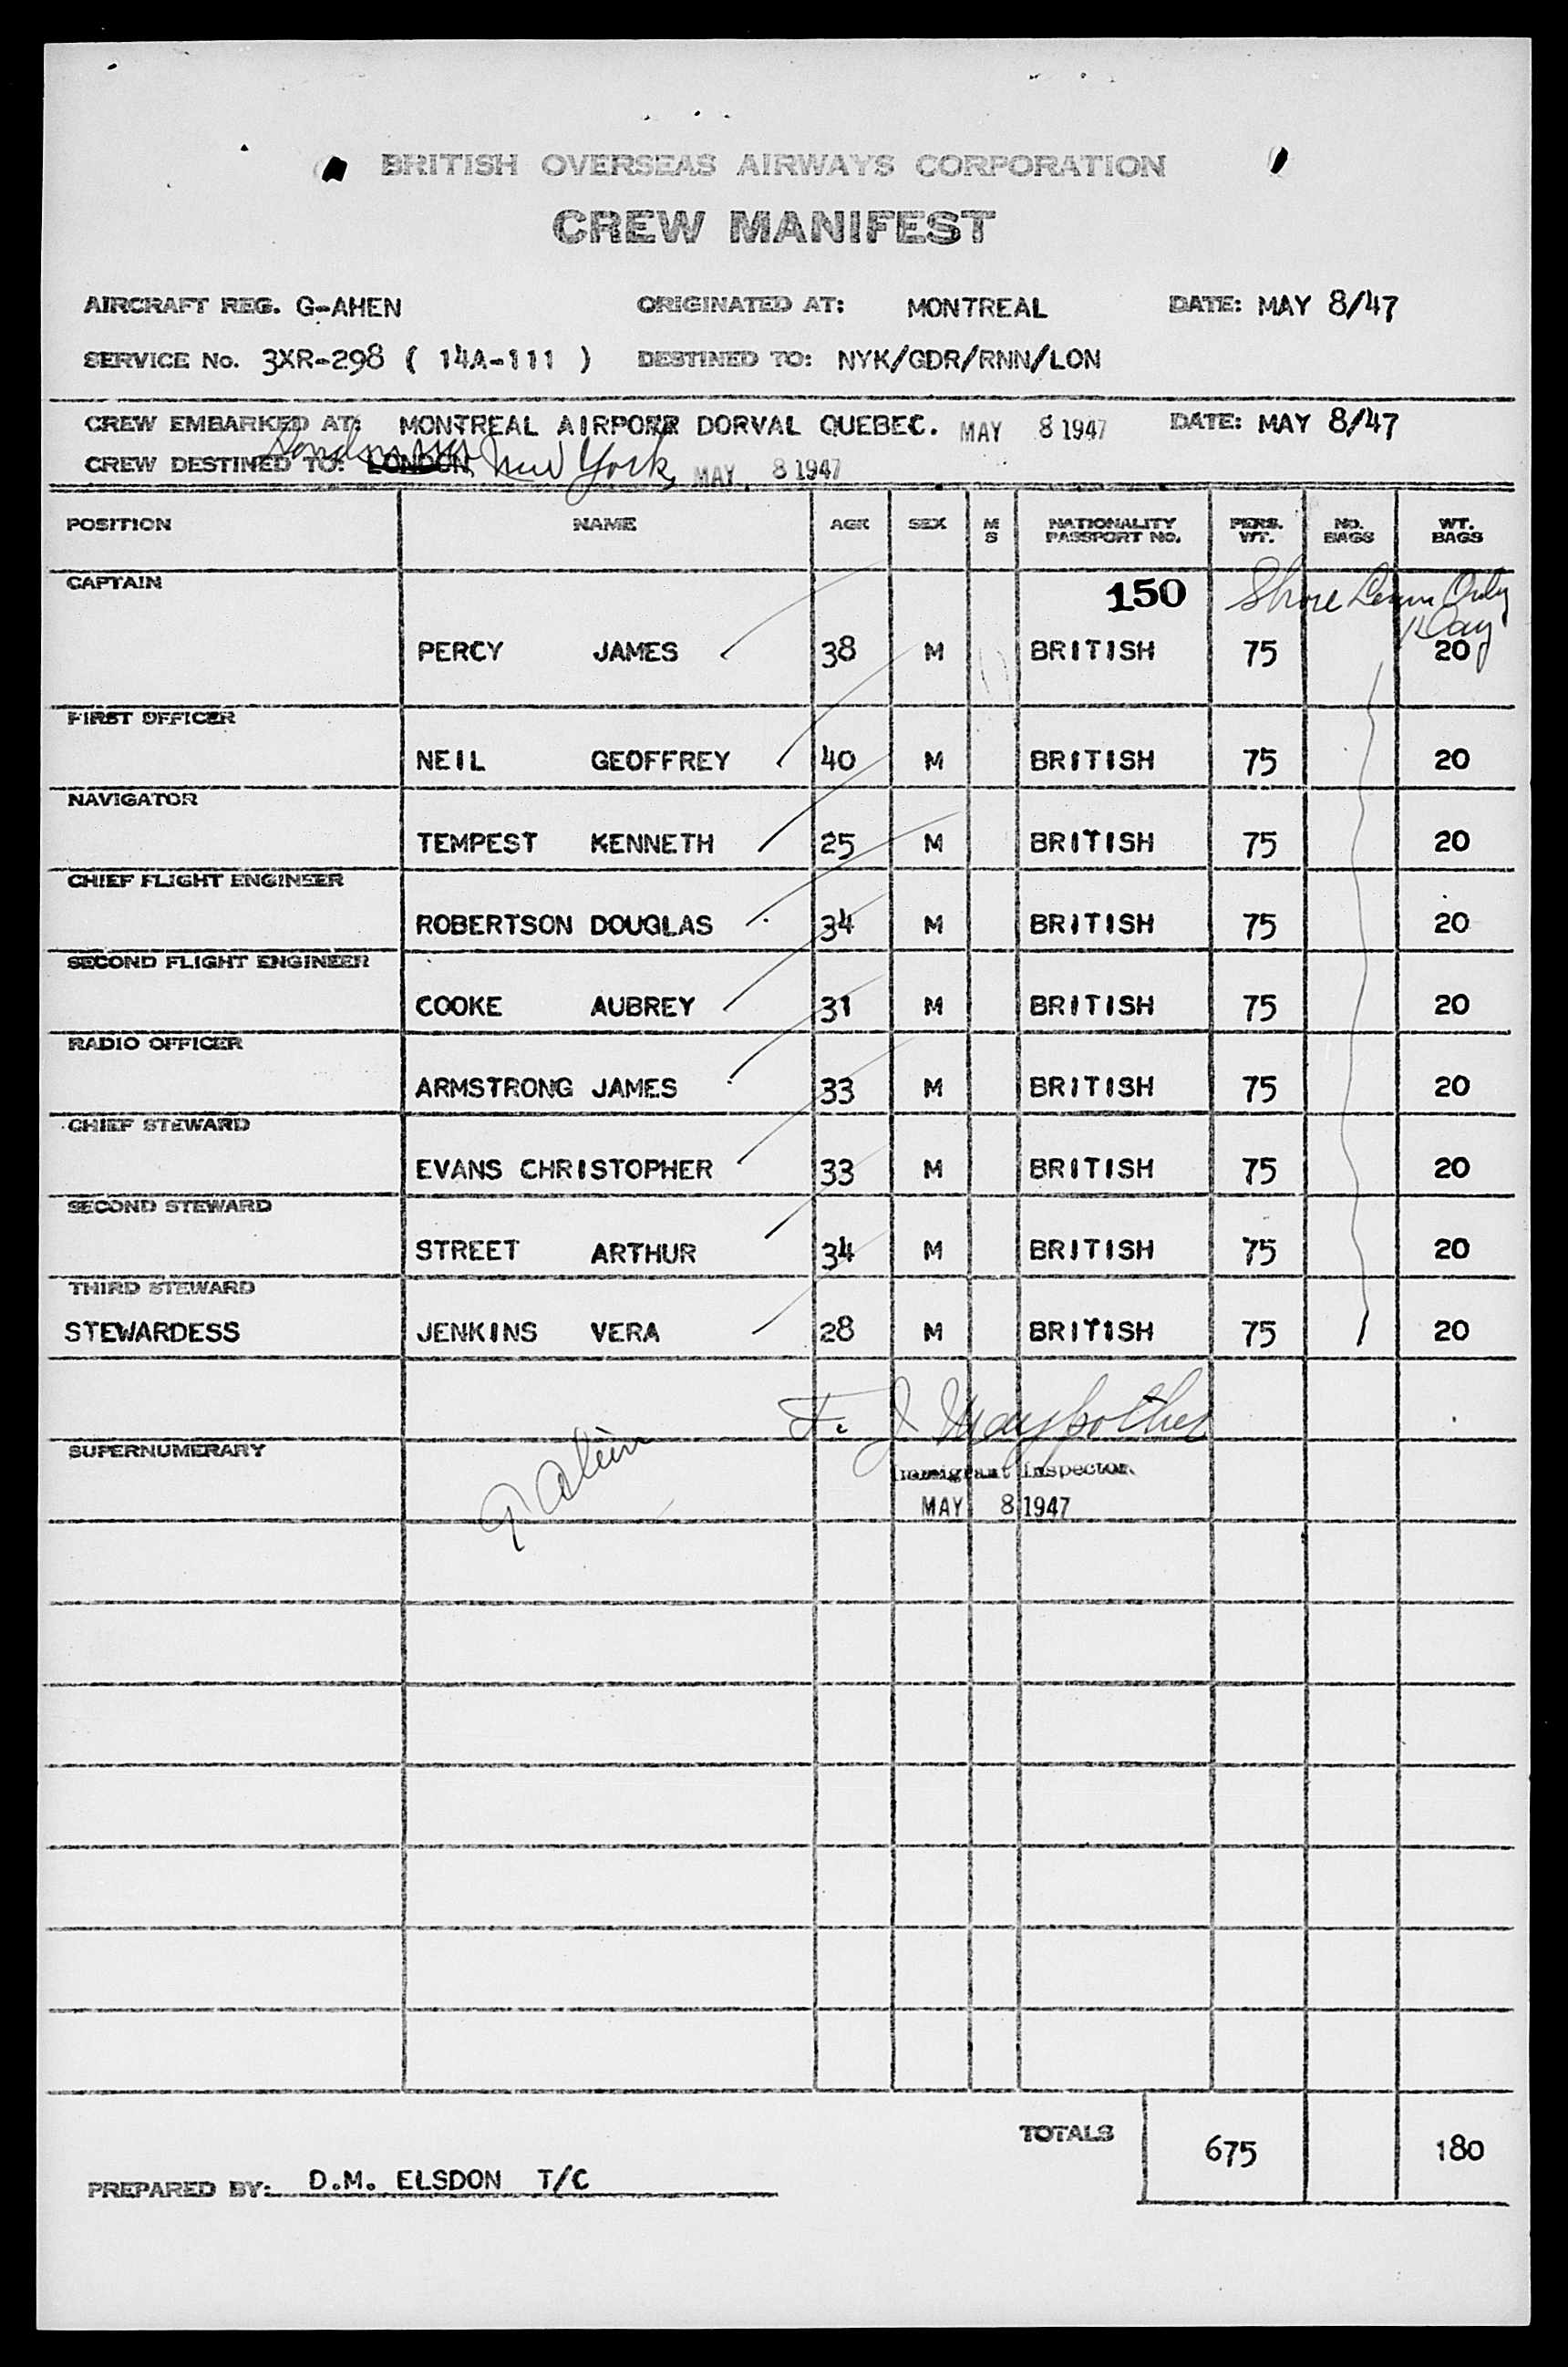 BRITISH OVERSEAS AIRWAYS CORPORATION
CREW MANIFEST
AIRCRAFT REG. G-AHEN ORIGINATED AT: MONTREAL DATE: MAY 8/47
SERVICE No. 3XR-298 ( 14A-111 ) DESTINED TO: NYK/GDR/RNN/LON
CREW EMBARKED AT: MONTREAL AIRPORR DORVAL QUEBEC. MAY 8 1947 DATE: MAY 8/47
CREW DESTINED TO: LONDON New York, MAY 8 1947
POSITION NAME AGE SEX M S NATIONALITY PASSPORT NO. PERS. WT. NO. BAGS WT. BAGS
CAPTAIN 150 Shore Only
PERCY JAMES 38 M BRITISH 75 20
FIRST OFFICER
NEIL GEOFFREY 40 M BRITISH 75 20
NAVIGATOR
TEMPEST KENNETH 25 M BRITISH 75 20
CHIEF FLIGHT ENGINEER
ROBERTSON DOUGLAS 34 M BRITISH 75 20
SECOND FLIGHT ENGINEER
COOKE AUBREY 31 M BRITISH 75 20
RADIO OFFICER
ARMSTRONG JAMES 33 M BRITISH 75 20
CHIEF STEWARD
EVANS CHRISTOPHER 33 M BRITISH 75 20
SECOND STEWARD
STREET ARTHUR 34 M BRITISH 75 20
THIRD STEWARD
STEWARDESS JENKINS VERA 28 M BRITISH 75 20
F. J.
SUPERNUMERARY
9 alein
Immigrant Inspector.
MAY 8 1947
TOTALS 675 180
PREPARED BY: D.M. ELSDON T/C